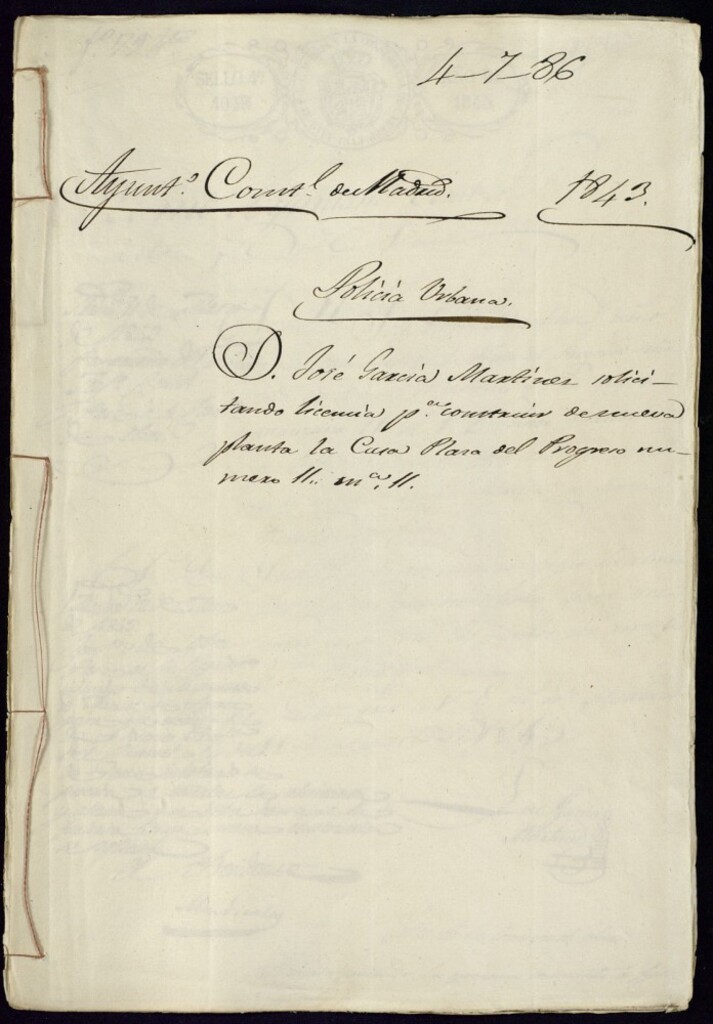 4-7-86
Ayunt.º Const.l de Madrid. 1843.
Policia Urbana.
D. José Garcia Martinez solici-
tando licencia p.a construir de nueva
planta la Casa Plaza del Progreso nu-
mero 11. m.a 11.